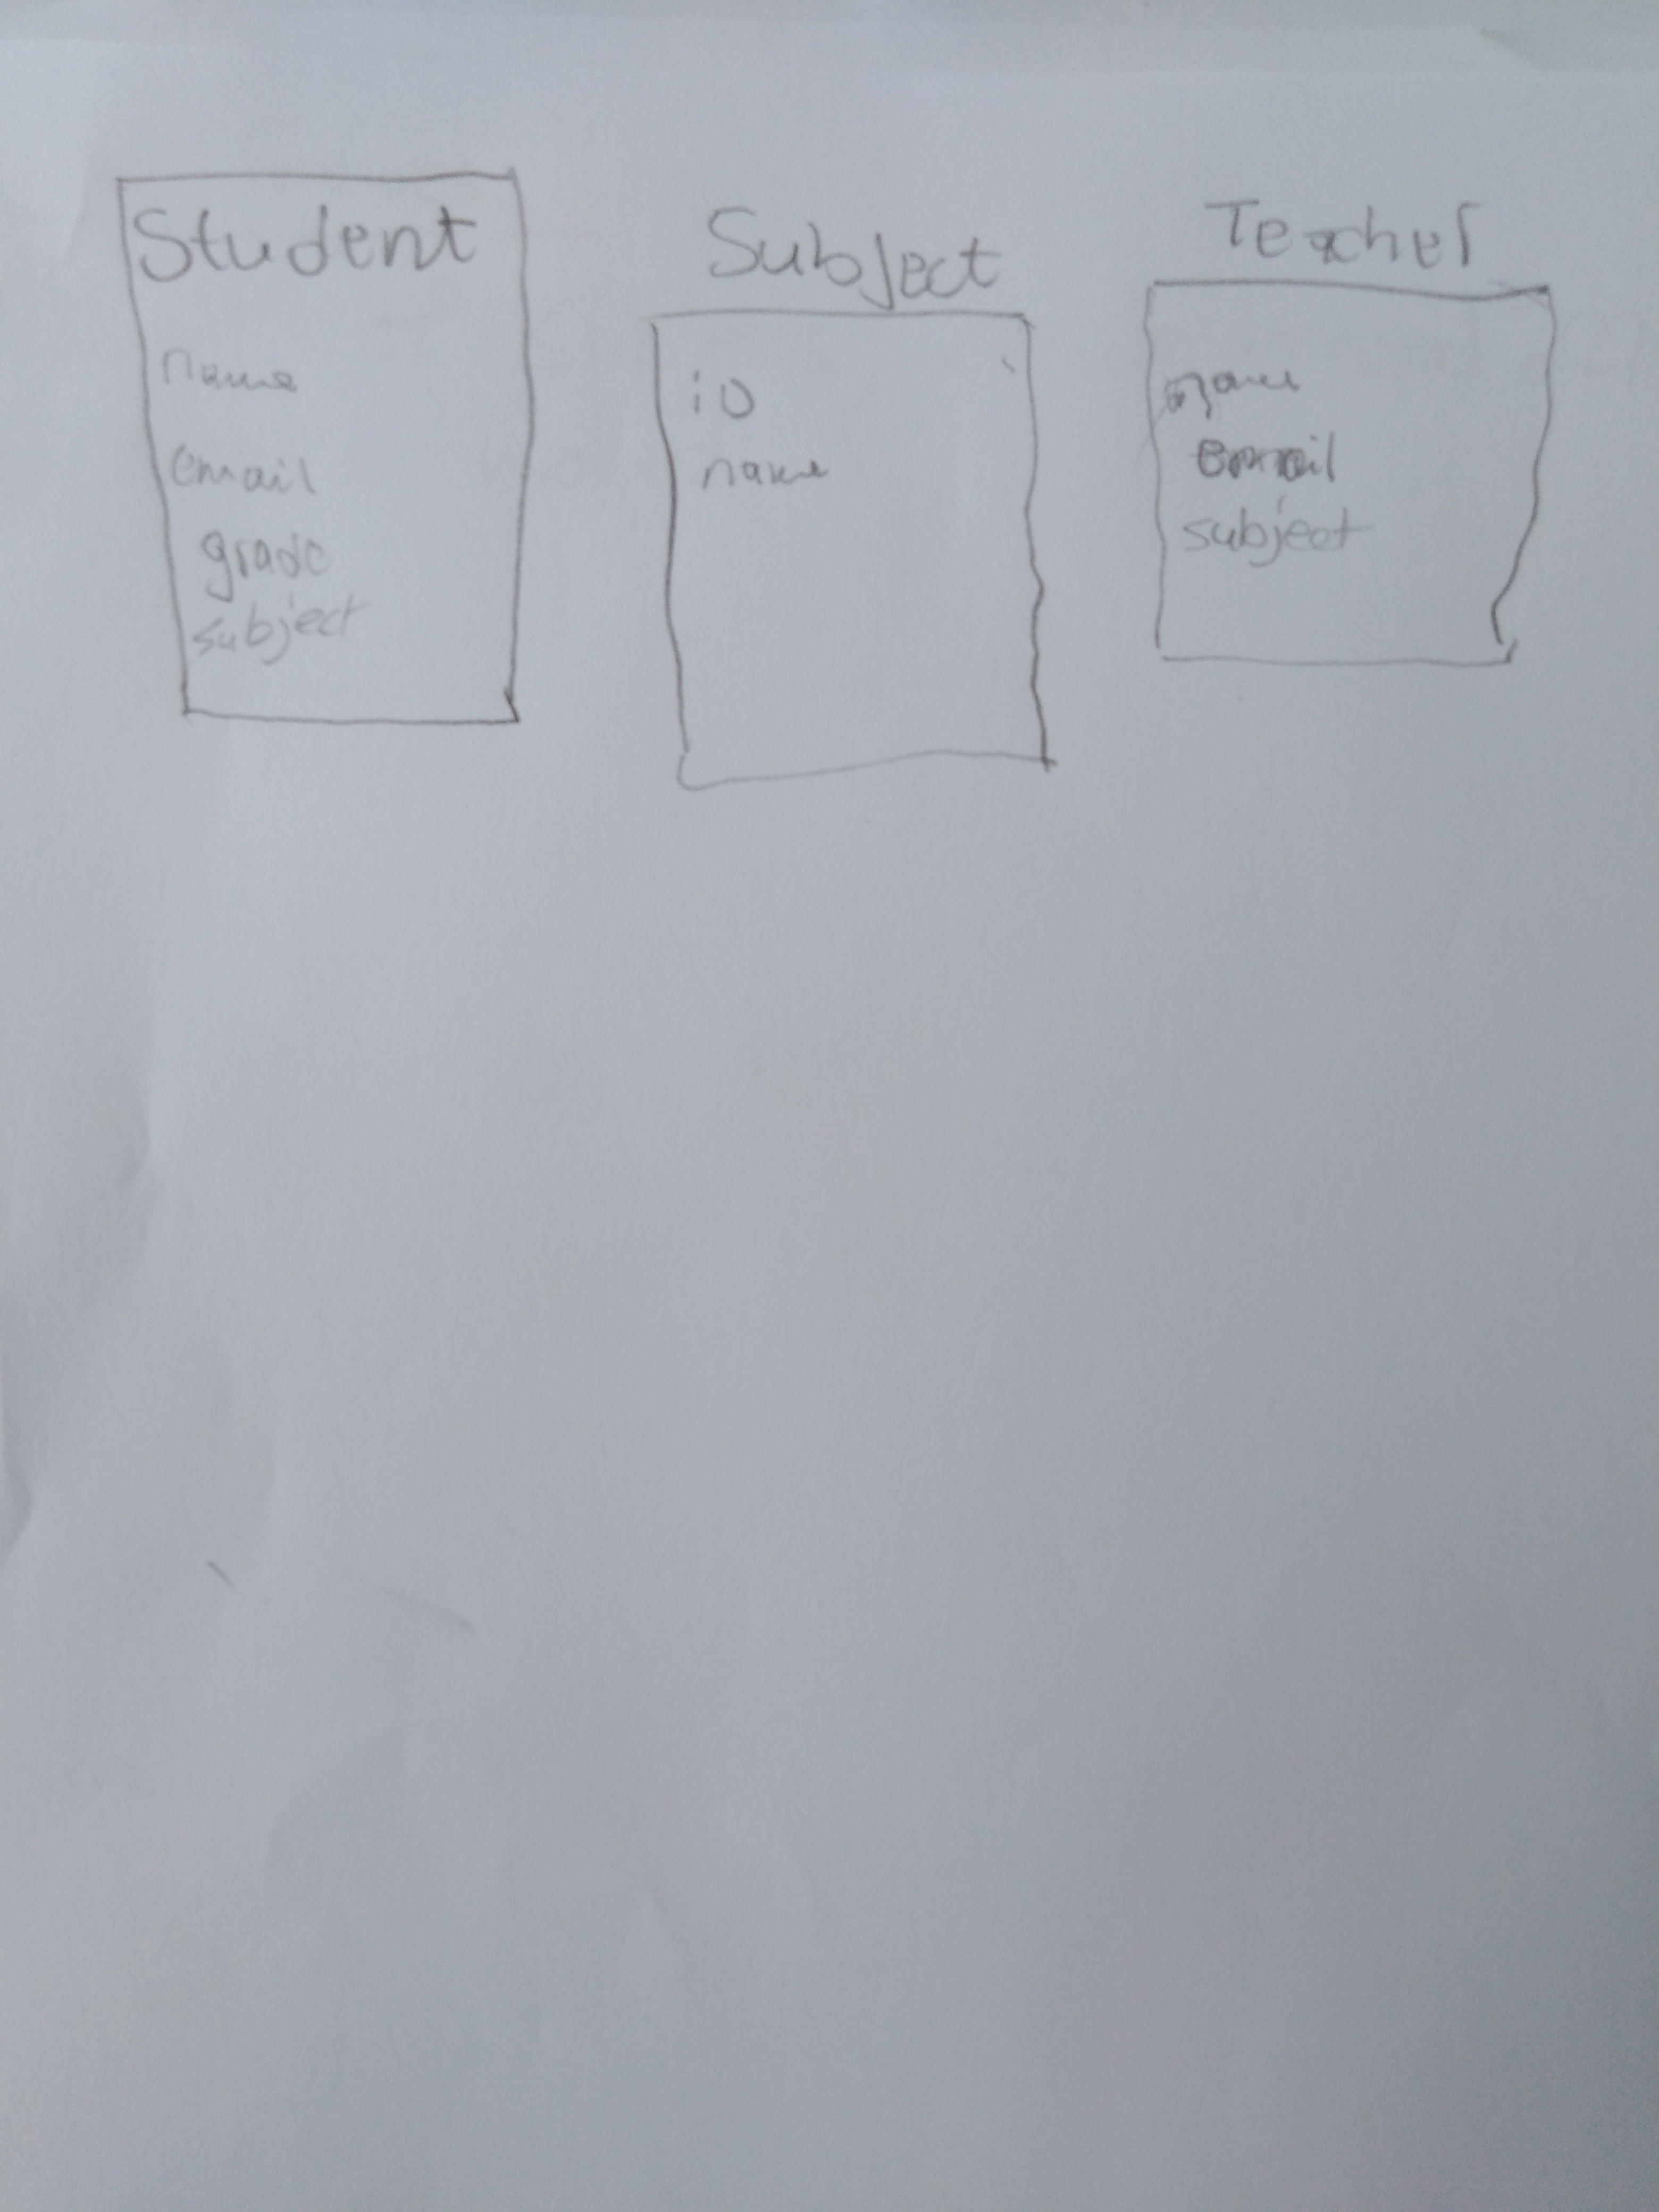 Student
name
email
grade
subject
Subject
iD
name
Teacher
name
email
subject